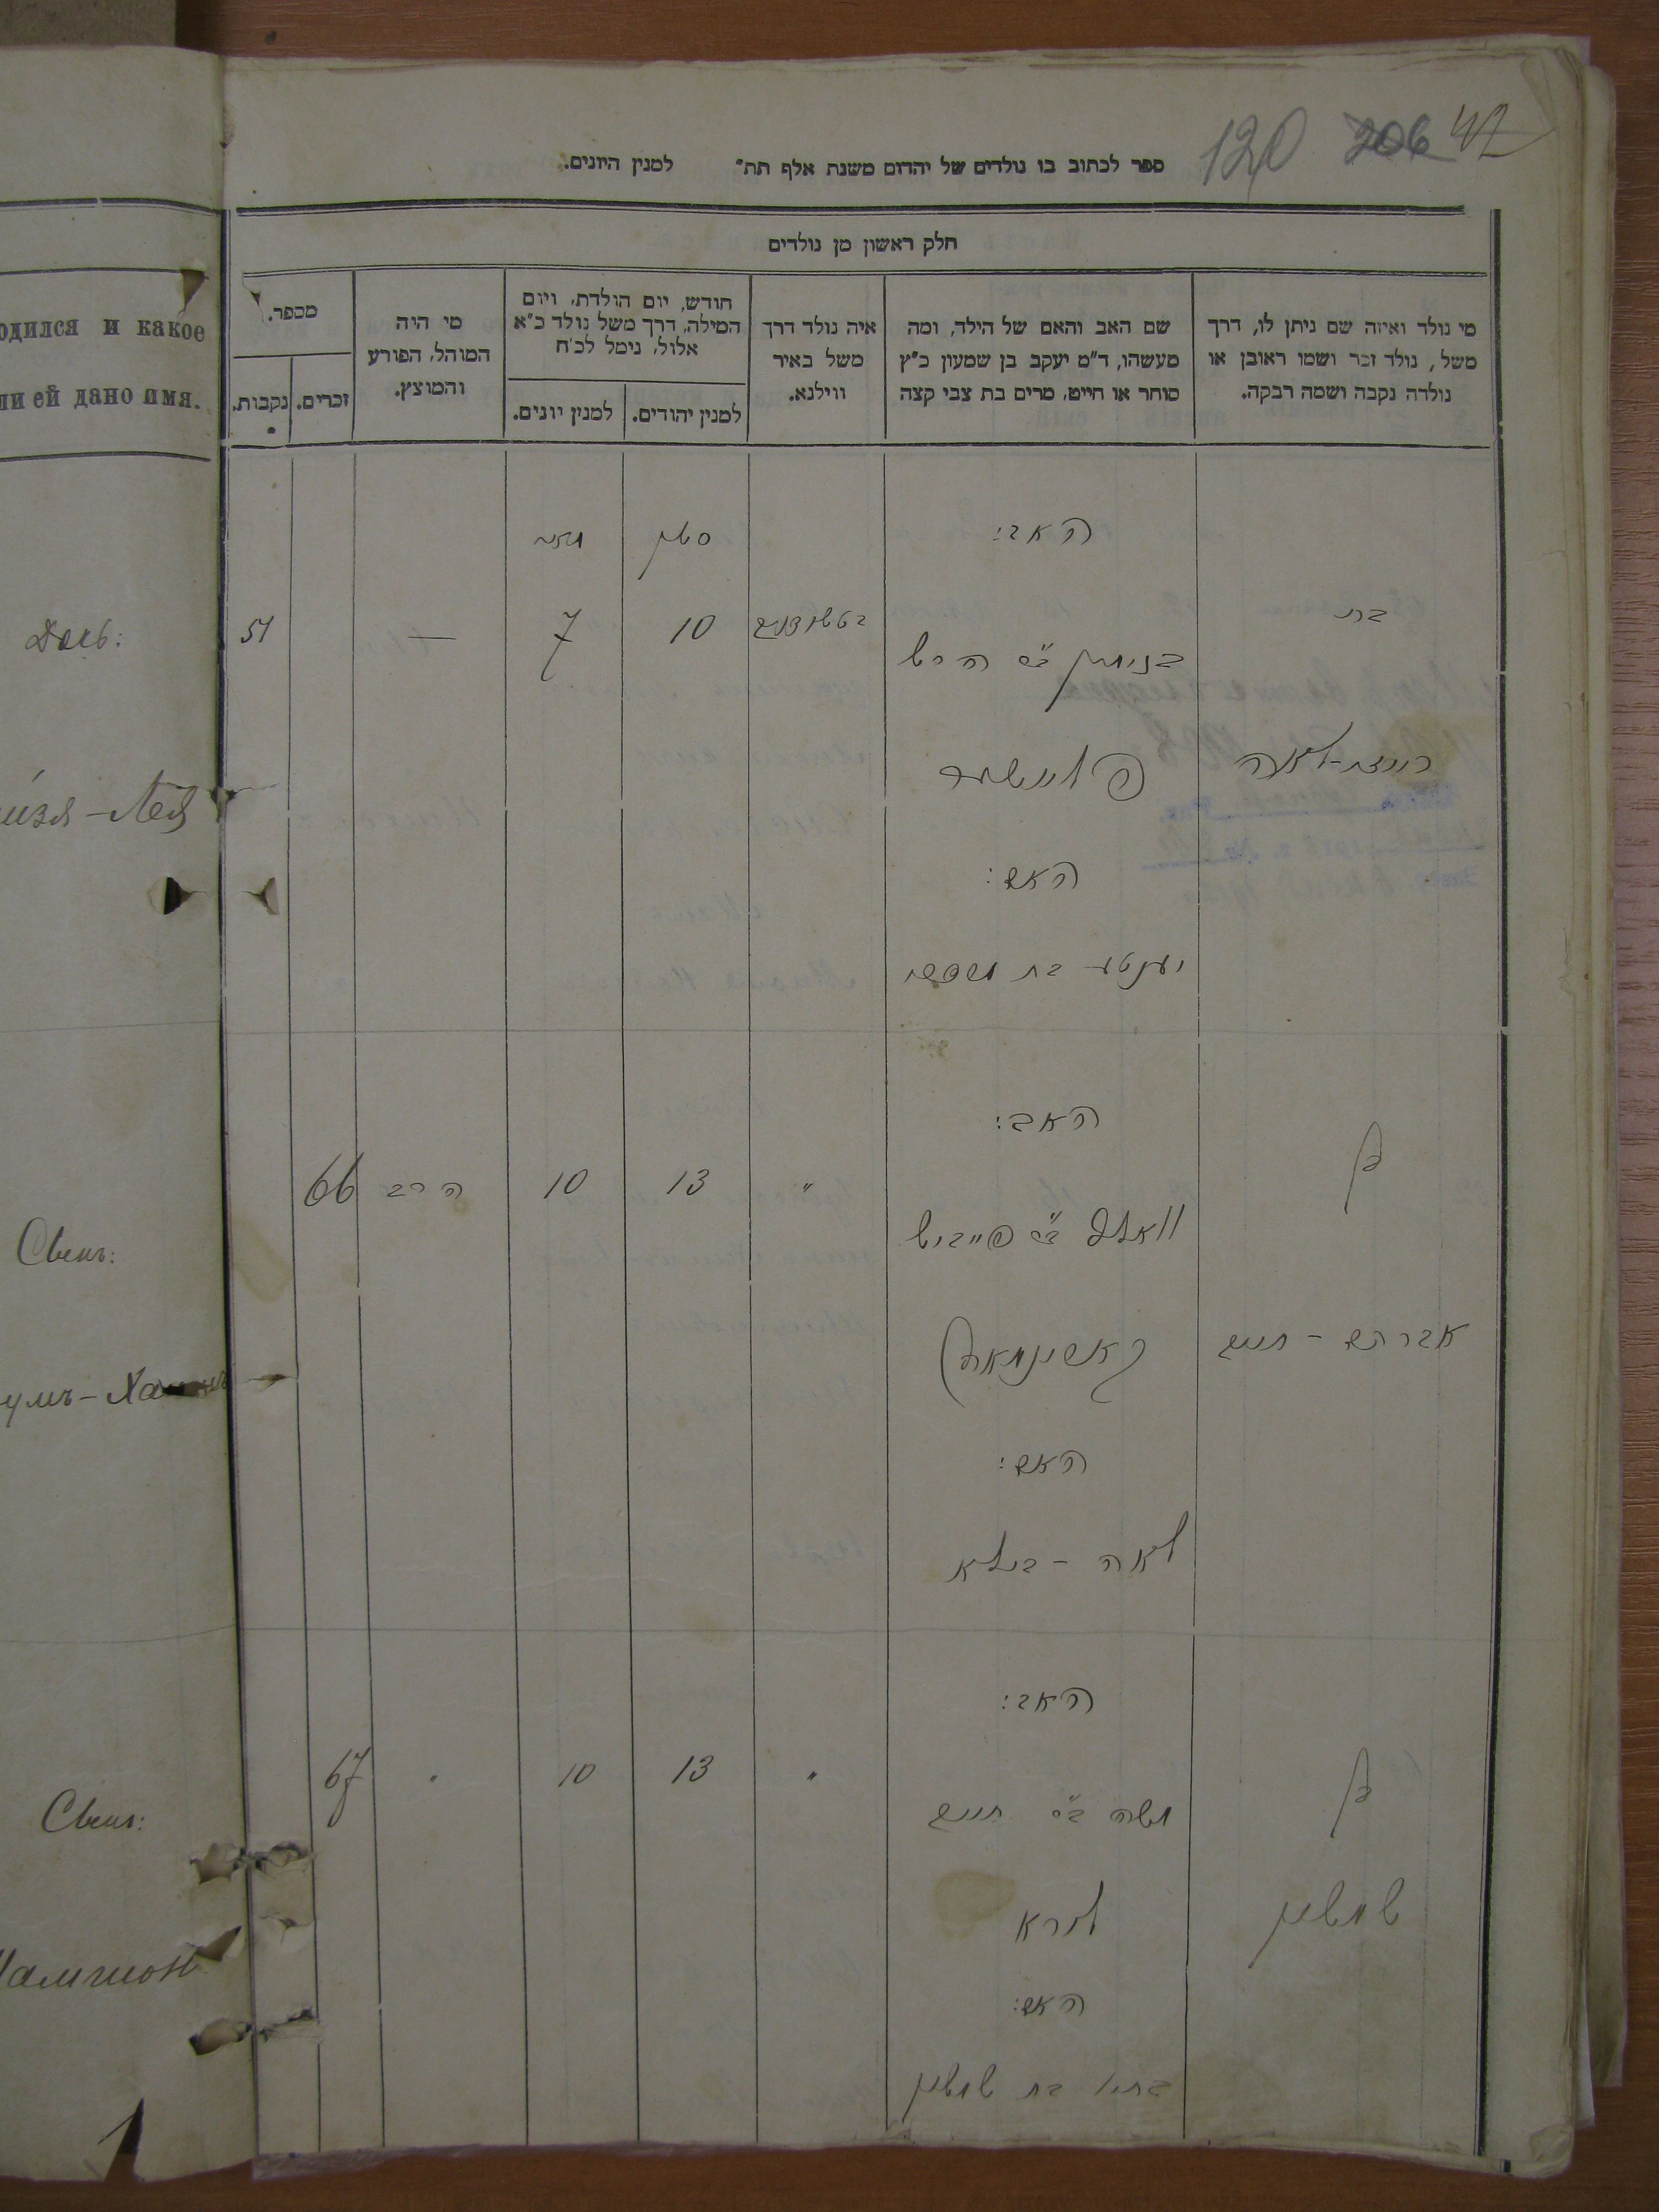 120 206 47
ספר לכתוב בו נולדים של יהדום משנת אלף תת" למנין היונים.
חלק ראשון מן נולדים
מי נולד ואיזה שם ניתן לו, דרך משל, נולד זכר ושמו ראובן או נולדה נקבה ושמה רבקה.
שם האב והאם של הילד, ומה מעשהו, ד"מ יעקב בן שמעון כ"ץ סוחר או חייט, מרים בת צבי קצה
איה נולד דרך משל באיר ווילנא.
חודש, יום הולדת, ויום המילה, דרך משל נולד כ"א אלול, נימל לכ"ח
למנין יהודים.
למנין יונים.
מי היה המוהל, הפורע והמוצץ.
מספר.
זכרים.
נקבות.
одился и какое
ли ей дано имя.
האב:
בת
בנימין ב"ר הירש
10
7
—
51
Дочь:
לאה
-Лея
האם:
יענטע בת
האב:
בן
וואלף ב"ר פייביש
"
13
10
הרב
66
Сынъ:
אברהם - חיים
умъ-
האם:
לאה - ביילא
האב:
בן
משה ב"ר חיים
"
13
10
"
67
Сынъ:
שמשון
לוריא
האם:
בת שמשון